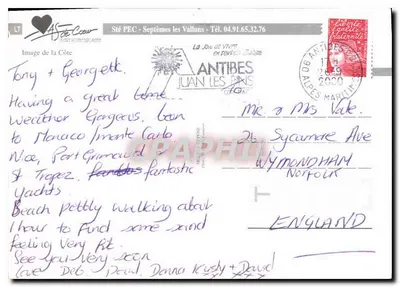 LT
As de Coeur
Sté PEC - Septèmes les Vallons - Tél. 04.91.65.32.76
Image de la Côte
LA JOIE DE VIVRE
ANTIBES
JUAN LES PINS
06 ANTIBES
2000
ALPES MARITIMES
Tony + Georgette
Having a great time
Weather Gorgeous, been
to Monaco/Monte Carlo
Nice, Port Grimaud
St Tropez fantastic
Yachts
Beach pebbly walking about
1 hour to find some sand
feeling very fit.
See you very soon
love Deb, Paul, Donna Kirsty + David
Mr & Mrs
26 Sycamore Ave
WYMONDHAM
NORFOLK
ENGLAND
T
DELCAMPE